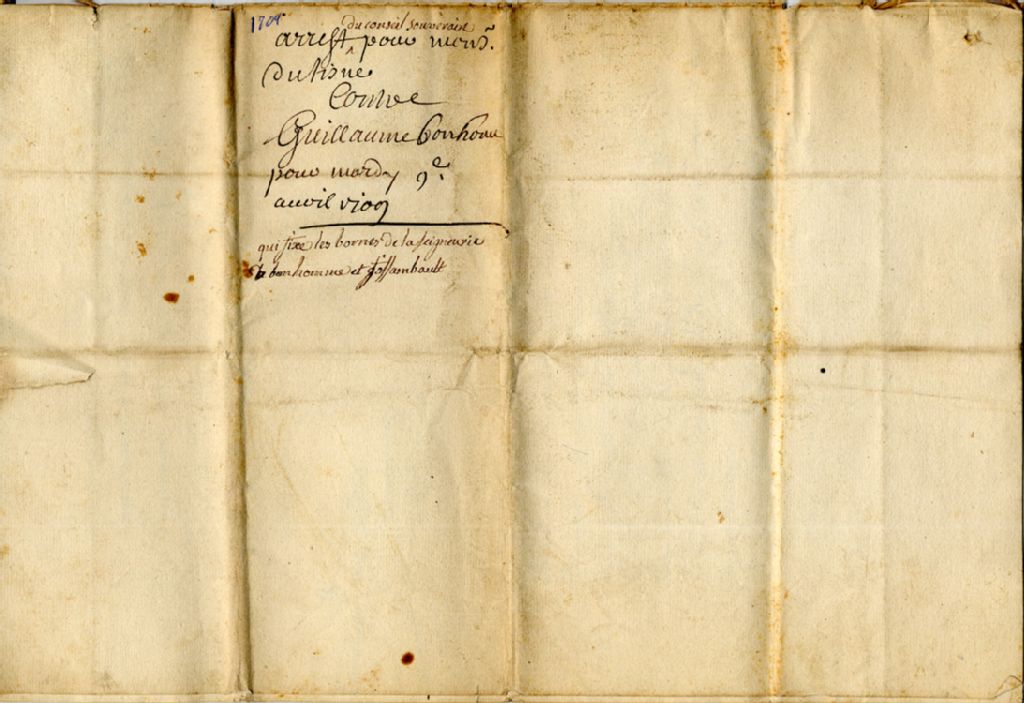 1709
du conseil souverain
arrest pour mons.r
Dutisne
Contre
Guillaume bonhome
pour mardy 9.e
avril 1709
qui fixe les bornes de la seigneurie
de bonhomme et fossambault